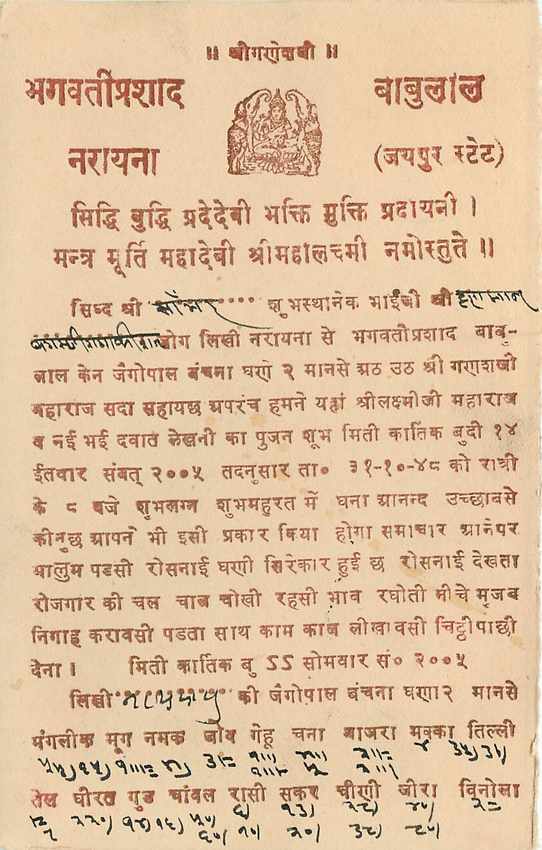 ॥ श्रीगणेशजी ॥
भगवतीप्रशाद बाबुलाल
नरायना (जयपुर स्टेट)
सिद्धि बुद्धि प्रदेदेबी भक्ति मुक्ति प्रदायनी ।
मन्त्र मूर्ति महादेबी श्रीमहालच्मी नमोस्तुते ॥
सिध्द श्री शुभस्थानेक भाईजी श्री
जोग लिखी नरायना से भगवतीप्रशाद बाबु-
लाल केन जैगोपाल बंचना घणे २ मानसे अठ उठ श्री गणशजी
महाराज सदा सहायछ अपरंच हमने यहां श्रीलक्ष्मीजी महाराज
व नई भई दवात लेखनी का पुजन शूभ मिती कातिक बुदी १४
ईतवार संबत् २००५ तदनुसार ता० ३१-१०-४८ को रात्री
के ८ बजे शुभलग्न शुभमहुरत में घना आनन्द उच्छाबसे
कीनुछ आपने भी इसी प्रकार किया होगा समाचार आनेपर
मालुम पडसी रोसनाई घणी सिरेकार हुई छ रोसनाई देखता
रोजगार की चल चाल चोखी रहसी भाव रघोती नीचे मुजब
निगाह करावसी पडता साथ काम काज लीखावसी चिट्ठी पाछी
देना । मिती कार्तिक बु ऽऽ सोमवार सं० २००५
लिखी की जैगोपाल बंचना घणा२ मानसे
मंगलीक मूग नमक जोव गेहू चना बाजरा मक्का तिल्ली
तेल घीरत गुड चांवल रासी सकर चीणी जीरा विनोला